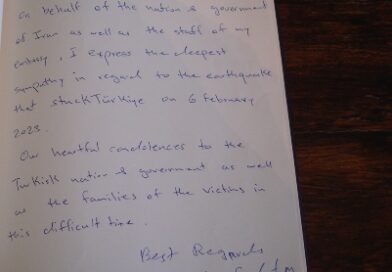 On behalf of the nation & government
of Iran as well as the staff of my
embassy, I express the deepest
sympathy in regard to the earthquake
that stuck Türkiye on 6 february
2023.
Our heartful condolences to the
Turkish nation & government as well
as the families of the victims in
this difficult time.
Best Regards